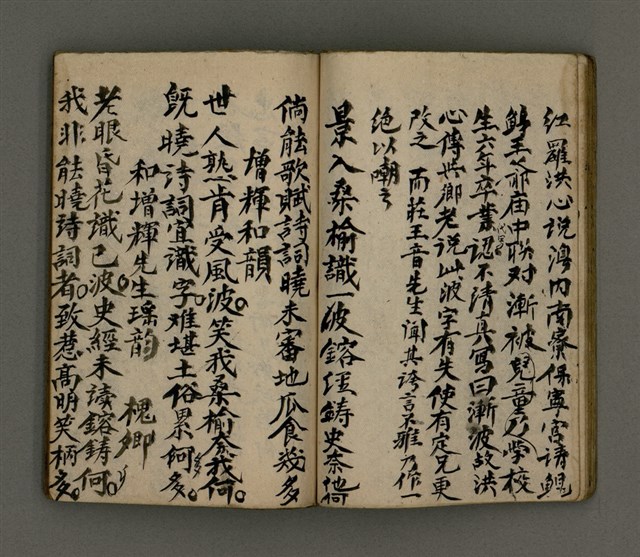 紅羅洪心說灣內南寮保寧宮請鯤
鯓王爺庙中联对漸被兒童入學校
生六年卒業認不清具寫曰漸波故洪
心傳與卿老說此波字有失使有定兄更
改之　而莊王音先生聞其誇言哀雅乃作一
絕以嘲之
景入桑榆識一波鎔經鑄史奈他何
倘能歌賦詩詞曉未審地瓜食幾多
增輝和韻
世人孰肯受风波笑我桑榆奈我何
既曉詩詞宜識字难堪土俗累何多
和增輝先生瑤韵　槐卿
老眼昏花識已波史經未讀鎔鋳何
我非能曉詩詞者致惹高明笑柄多